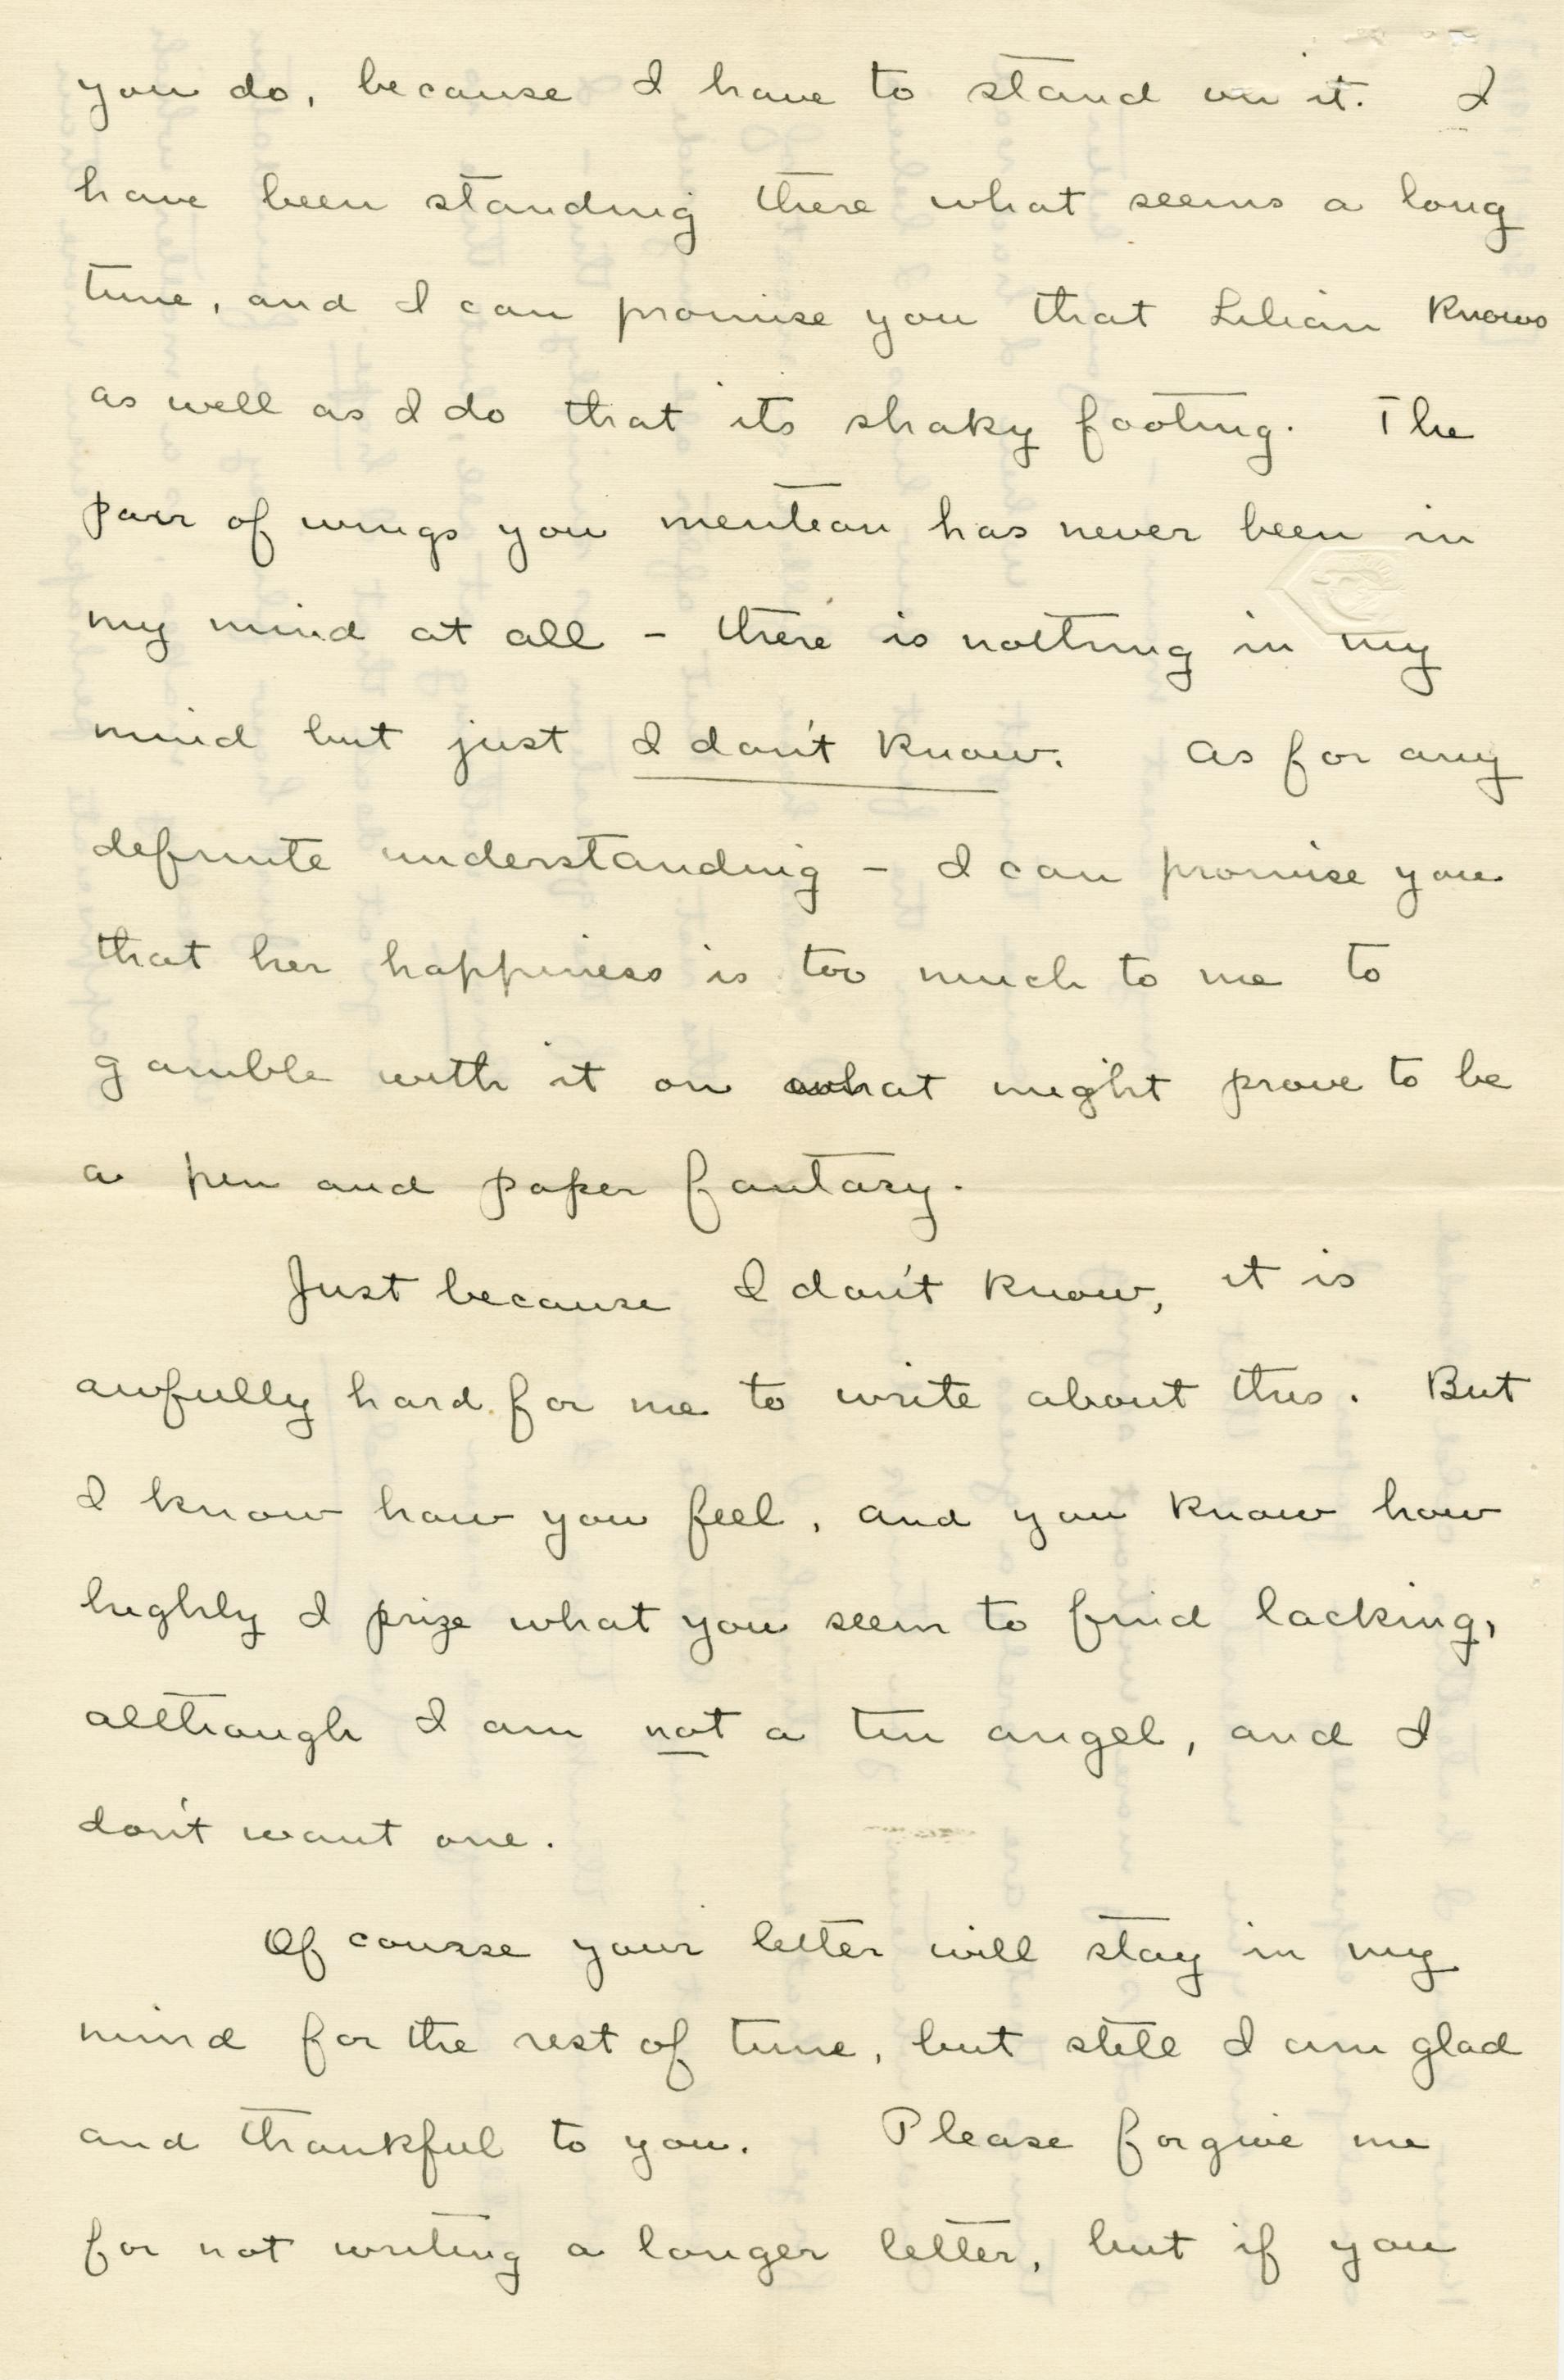 you do, because I have to stand on it. I
have been standing there what seems a long
time, and I can promise you that Lilian knows
as well as I do that its shaky footing. The
pair of wings you mention has never been in
my mind at all - there is nothing in my
mind but just I don't know. As for any
definite understanding - I can promise you
that her happiness is too much to me to
gamble with it on what might prove to be
a pen and paper fantasy.
Just because I don't know, it is
awfully hard for me to write about this. But
I know how you feel, and you know how
highly I prize what you seem to find lacking,
although I am not a tin angel, and I
don't want one.
Of course your letter will stay in my
mind for the rest of time, but still I am glad
and thankful to you. Please forgive me
for not writing a longer letter, but if you